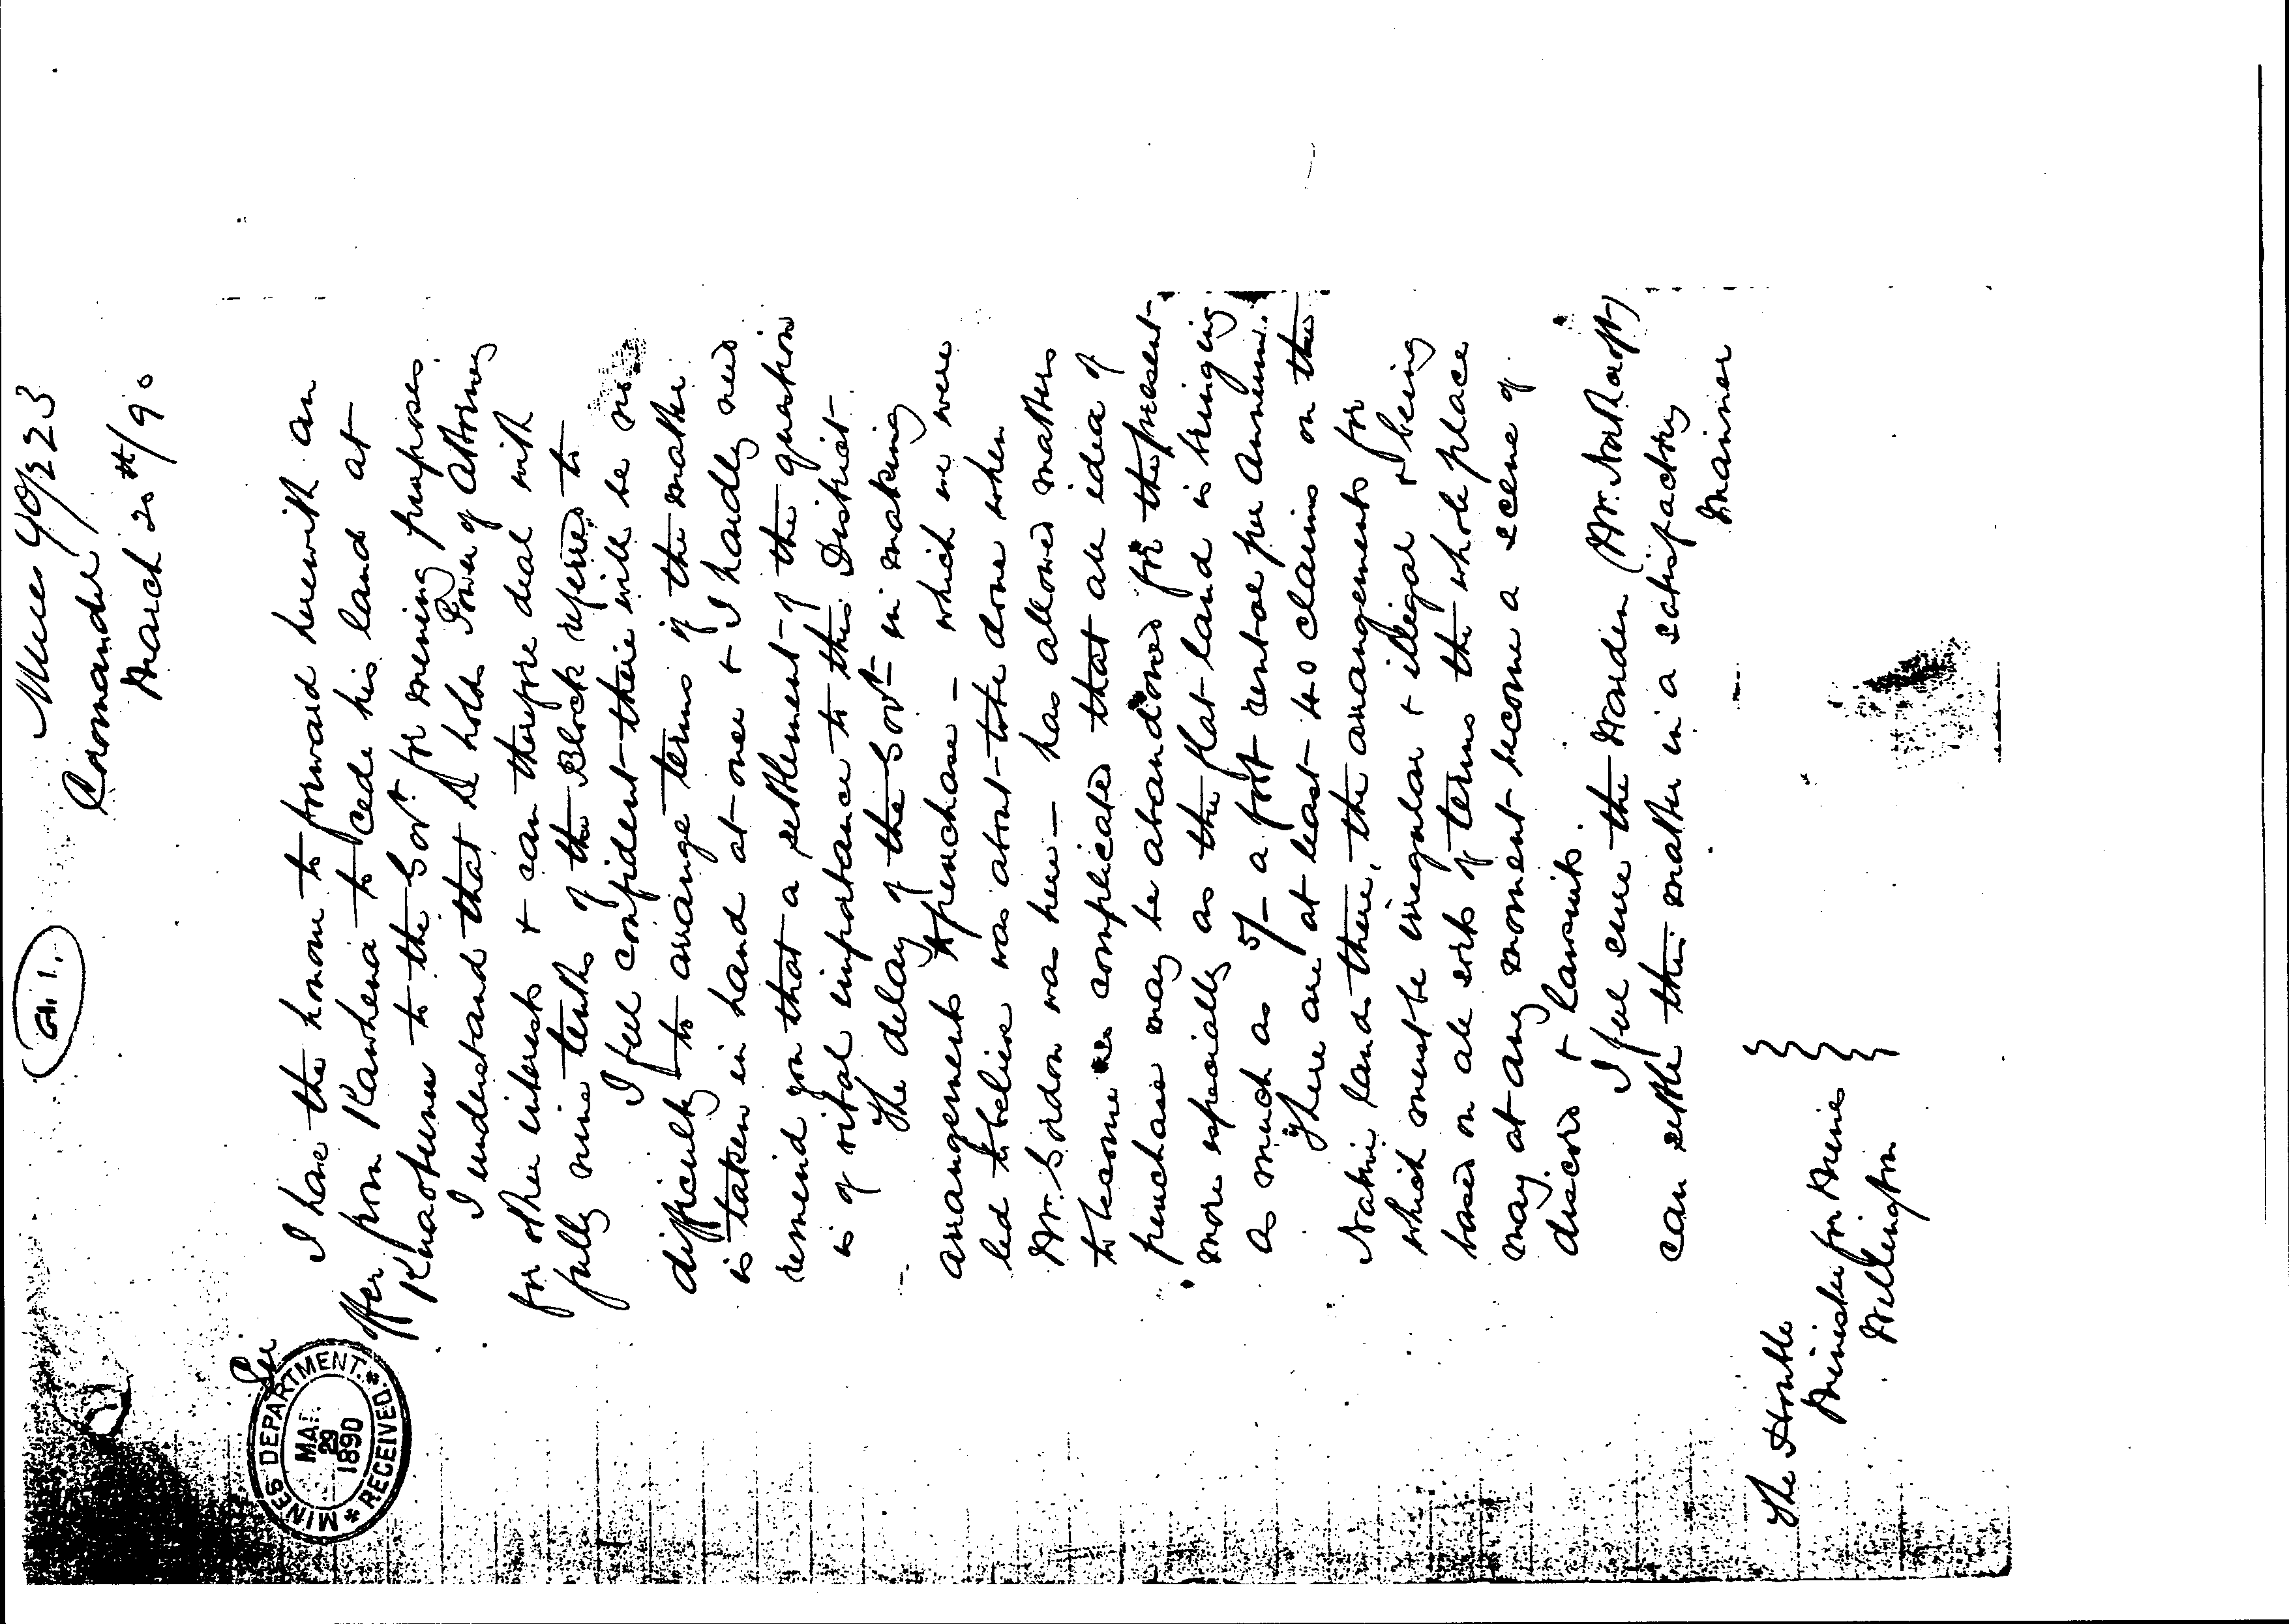 Mines 90/223
Coromandel
March 20th/90
G. 1.
MINES DEPARTMENT.
MAR
29
1890
RECEIVED
Sir
I have the honor to forward herewith an
offer from Kawhena to cede his land at
to the Govt. for mining purposes.
I understand that he holds Power of Attorney
for other interests + can therefore deal with
fully nine tenths of the Block referred to
I feel confident there will be no
difficulty to arrange terms if the matter
is taken in hand at once + I hardly need
remind you that a settlement of the question
is of vital importance to this District.
The delay of the Govt in making
arrangements to purchase – which we were
led to believe was about to be done when
Mr. Gordon was here – has allowed matters
to become complicated that all idea of
purchase may be abandoned for the present
more especially as the flat land is bringing
as much as 5/- a foot rental per annum.
There are at least 40 claims on the
Native land there, the arrangements for
which must be irregular + illegal + being
based on all sorts of terms the whole place
may at any moment become a scene of
discord + lawsuits.
I feel sure the Warden (Mr. Northcroft)
can settle this matter in a satisfactory
manner
The Honble
Minister for Mines
Wellington